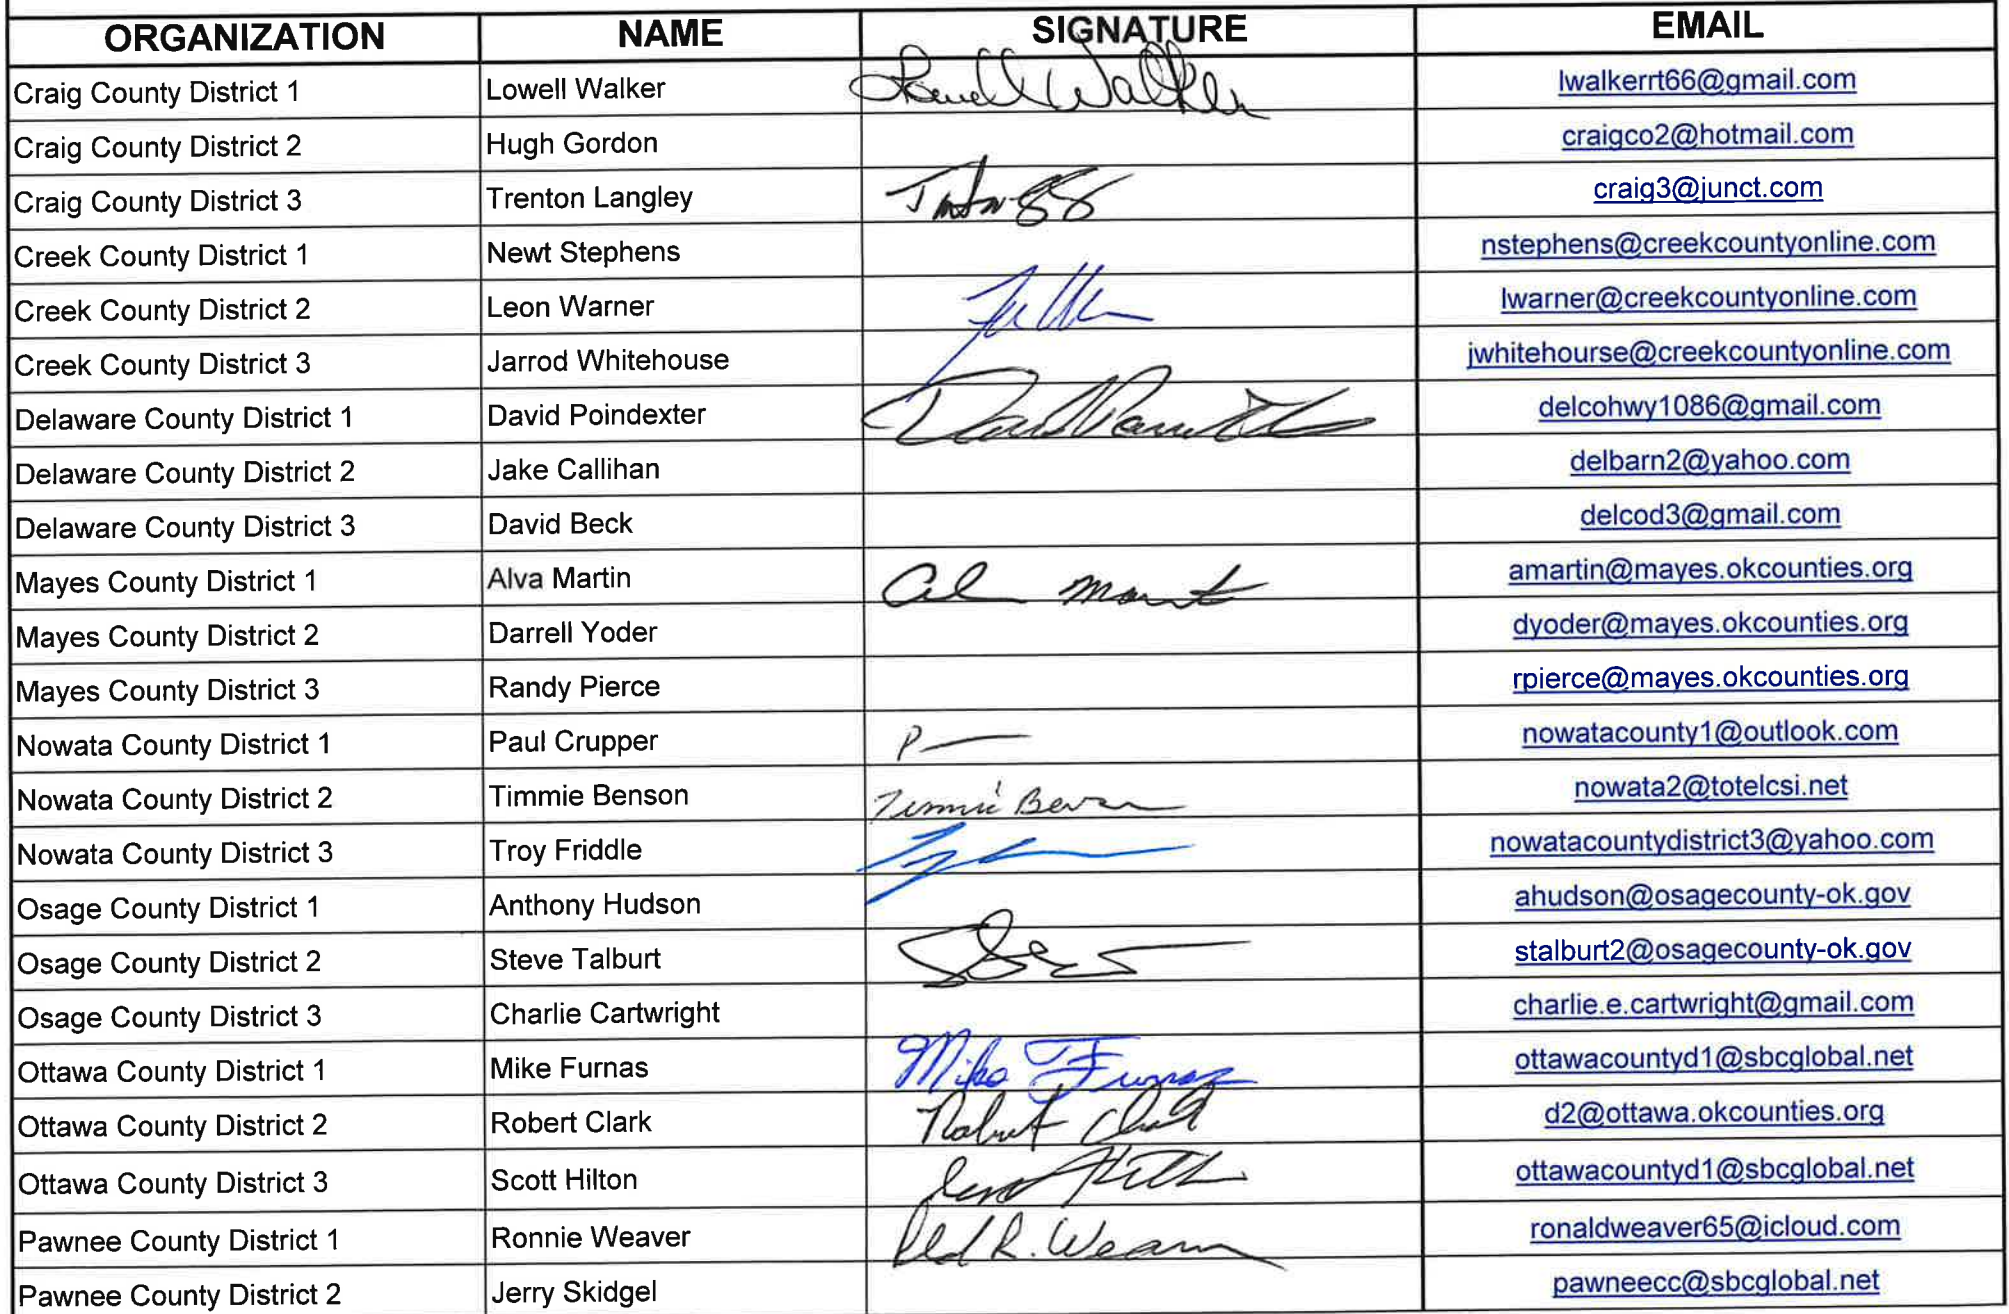 ORGANIZATION NAME SIGNATURE EMAIL
Craig County District 1 Lowell Walker Lowell Walker lwalkerrt66@gmail.com
Craig County District 2 Hugh Gordon craigco2@hotmail.com
Craig County District 3 Trenton Langley craig3@junct.com
Creek County District 1 Newt Stephens nstephens@creekcountyonline.com
Creek County District 2 Leon Warner lwarner@creekcountyonline.com
Creek County District 3 Jarrod Whitehouse jwhitehourse@creekcountyonline.com
Delaware County District 1 David Poindexter delcohwy1086@gmail.com
Delaware County District 2 Jake Callihan delbarn2@yahoo.com
Delaware County District 3 David Beck delcod3@gmail.com
Mayes County District 1 Alva Martin amartin@mayes.okcounties.org
Mayes County District 2 Darrell Yoder dyoder@mayes.okcounties.org
Mayes County District 3 Randy Pierce rpierce@mayes.okcounties.org
Nowata County District 1 Paul Crupper nowatacounty1@outlook.com
Nowata County District 2 Timmie Benson Timmie Benson nowata2@totelcsi.net
Nowata County District 3 Troy Friddle nowatacountydistrict3@yahoo.com
Osage County District 1 Anthony Hudson ahudson@osagecounty-ok.gov
Osage County District 2 Steve Talburt stalburt2@osagecounty-ok.gov
Osage County District 3 Charlie Cartwright charlie.e.cartwright@gmail.com
Ottawa County District 1 Mike Furnas Mike Furnas ottawacountyd1@sbcglobal.net
Ottawa County District 2 Robert Clark Robert Clark d2@ottawa.okcounties.org
Ottawa County District 3 Scott Hilton ottawacountyd1@sbcglobal.net
Pawnee County District 1 Ronnie Weaver R. Weaver ronaldweaver65@icloud.com
Pawnee County District 2 Jerry Skidgel pawneecc@sbcglobal.net